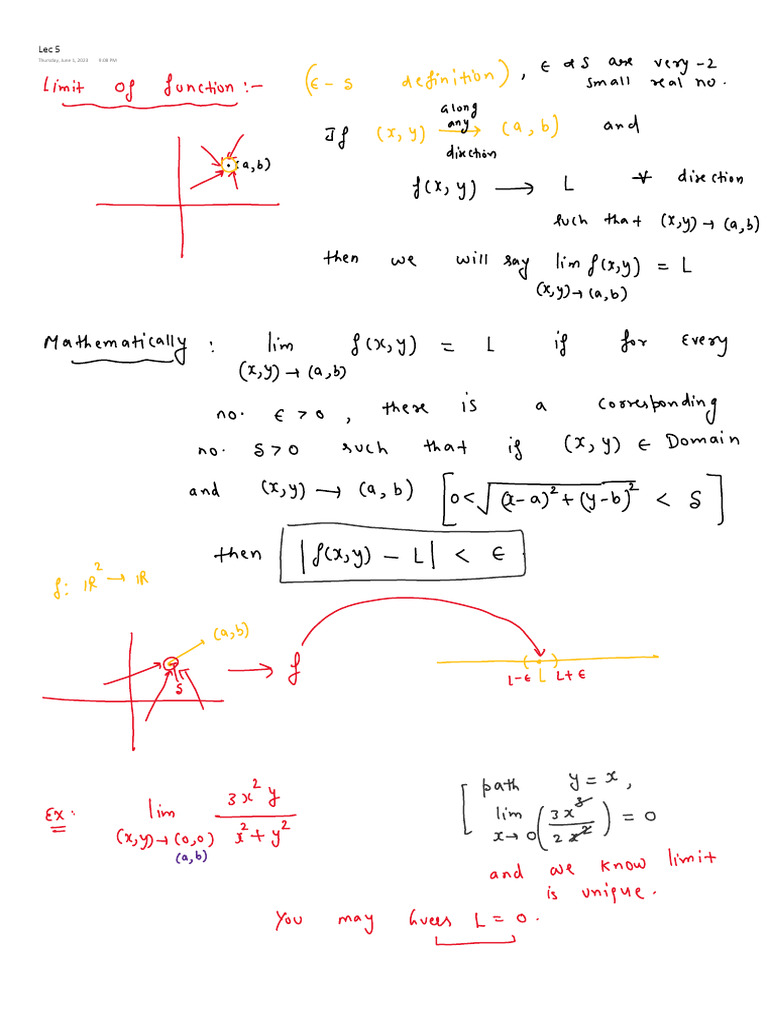 Lec 5
Thursday, June 1, 2023 5:08 PM
Limit of function :- (ϵ - δ definition), ϵ & δ are very -2 small real no.
If (x, y) along any direction → (a, b) and
(a, b)
f(x, y) → L ∀ direction
such that (x, y) → (a, b)
then we will say lim f(x,y) = L
(x,y) → (a, b)
Mathematically : lim f(x, y) = L if for every
(x, y) → (a, b)
no. ϵ > 0, there is a corresponding
no. δ > 0 such that if (x, y) ∈ Domain
and (x, y) → (a, b) [0 < √((x-a)² + (y-b)²) < δ]
then |f(x,y) - L| < ϵ
f: ℝ² → ℝ
(a, b)
→ f
δ
L-ϵ L L+ϵ
Ex: lim 3x²y / x² + y²
(x, y) → (0, 0)
(a, b)
[ path y = x,
lim (3x³ / 2x²) = 0
x → 0
and we know limit
is unique.
You may guess L = 0.